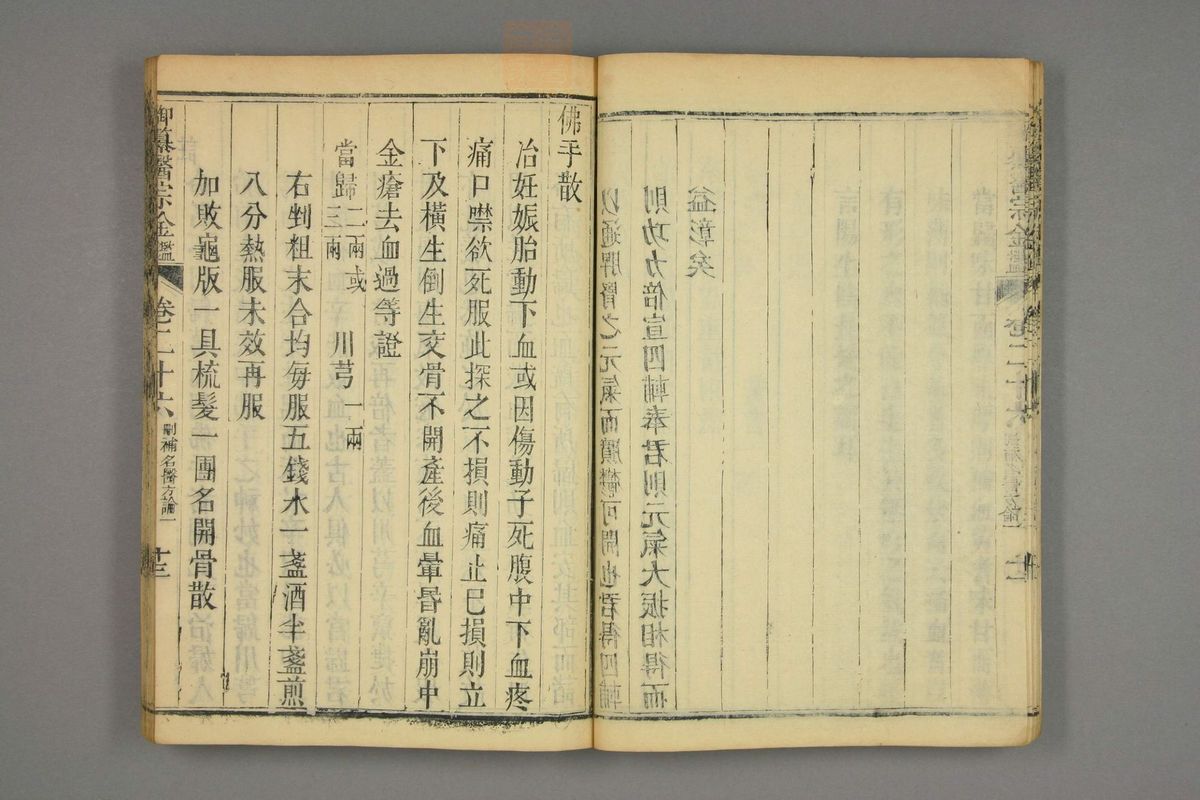 以通脾腎之元氣而膺鬱可開也君得四輔
則功力倍宣四輔奉君則元氣大振相得而
益彰矣
醫宗金鑑 卷二十六 刪補名醫方論一 十二
佛手散
治妊娠胎動下血或因傷動子死腹中下血疼
痛口噤欲死服此探之不損則痛止已損則立
下及橫生倒生交骨不開產後血暈昏亂崩中
金瘡去血過等證
當歸二兩或三兩 川芎一兩
右剉粗末合均每服五錢水一盞酒半盞煎
八分熱服未效再服
加敗龜版一具梳髮一團名開骨散
御纂醫宗金鑑 卷二十六 刪補名醫方論一 十三